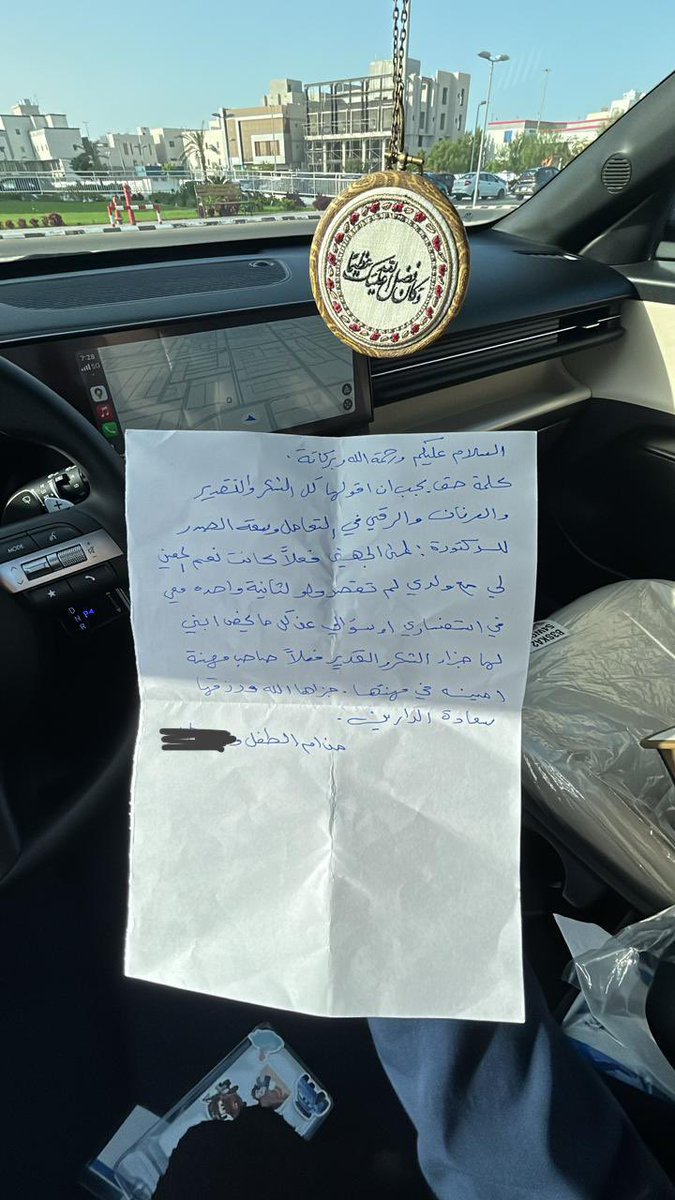 وكان فضل الله عليك عظيما
7:28
5G
MODE
D
N
R
P
السلام عليكم ورحمة الله وبركاتة .
كلمة حق يجب ان اقولها كل الشكر والتقدير
والعرفان والرقي في التعامل وسعة الصدر
للدكتورة : لمى الجهني فعلاً كانت نعم المعين
لي مع ولدي لم تقصر ولو لثانية واحده معي
في استفساري او سؤالي عن كل ما يخص ابني
لها جزاء الشكر والتقدير فعلاً صاحب مهنة
امينه في مهنتها . جزاها الله ورزقها
سعادة الدارين .
من ام الطفل